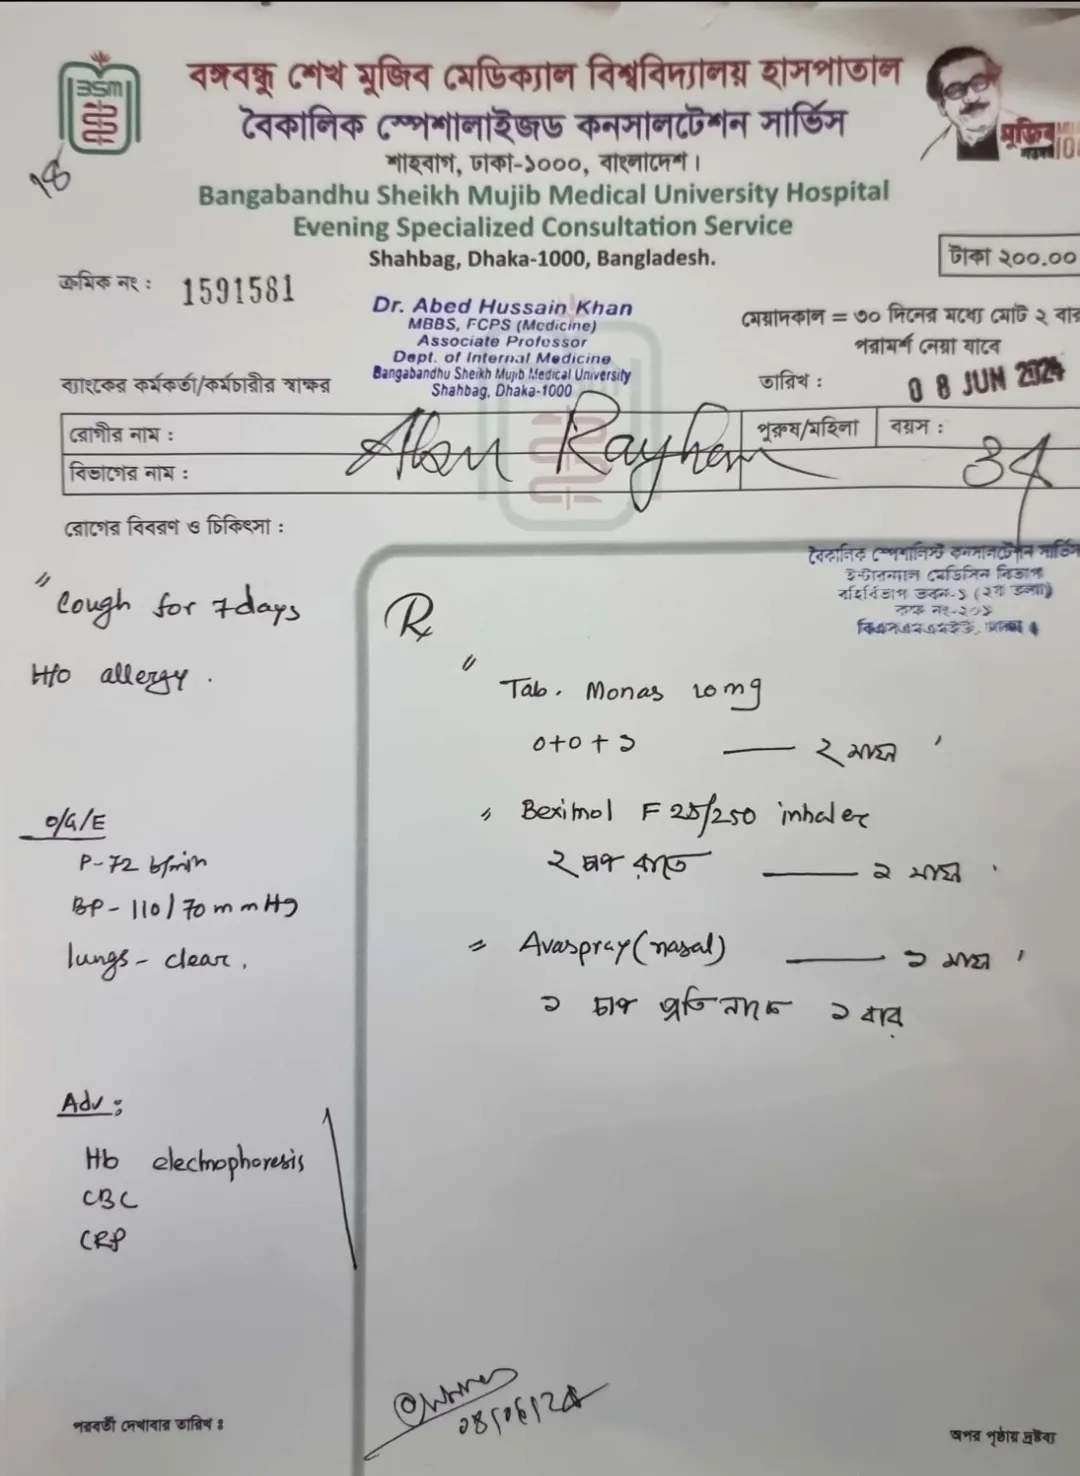 BSM
18
বঙ্গবন্ধু শেখ মুজিব মেডিক্যাল বিশ্ববিদ্যালয় হাসপাতাল
বৈকালিক স্পেশালাইজড কনসালটেশন সার্ভিস
শাহবাগ, ঢাকা-১০০০, বাংলাদেশ।
Bangabandhu Sheikh Mujib Medical University Hospital
Evening Specialized Consultation Service
Shahbag, Dhaka-1000, Bangladesh.
মুজিব
টাকা ২০০.০০
ক্রমিক নং : 1591581
Dr. Abed Hussain Khan
MBBS, FCPS (Medicine)
Associate Professor
Dept. of Internal Medicine
Bangabandhu Sheikh Mujib Medical University
Shahbag, Dhaka-1000
মেয়াদকাল = ৩০ দিনের মধ্যে মোট ২ বার
পরামর্শ নেয়া যাবে
ব্যাংকের কর্মকর্তা/কর্মচারীর স্বাক্ষর
তারিখ : 08 JUN 2024
রোগীর নাম : Abu Rayhan
পুরুষ/মহিলা
বয়স : 34
বিভাগের নাম :
রোগের বিবরণ ও চিকিৎসা :
বৈকালিক স্পেশালিস্ট কনসালটেশন সার্ভিস
ইন্টারন্যাল মেডিসিন বিভাগ
বহির্বিভাগ ভবন-১ (২য় তলা)
কক্ষ নং-২০১
" Cough for 7days
H/O allergy.
O/G/E
P-72 b/min
BP- 110/70mmHg
lungs- clear.
Adv:
Hb electrophoresis
CBC
CRP
Rx
" Tab. Monas 10mg
0+0+১ — ২ মাস
" Beximol F 25/250 inhaler
২ চাপ রাতে — ২ মাস
" Avaspray (nasal) — ১ মাস
১ চাপ প্রতি নাকে ২ বার
08/06/24
পরবর্তী দেখাবার তারিখ :
অপর পৃষ্ঠায় দ্রষ্টব্য